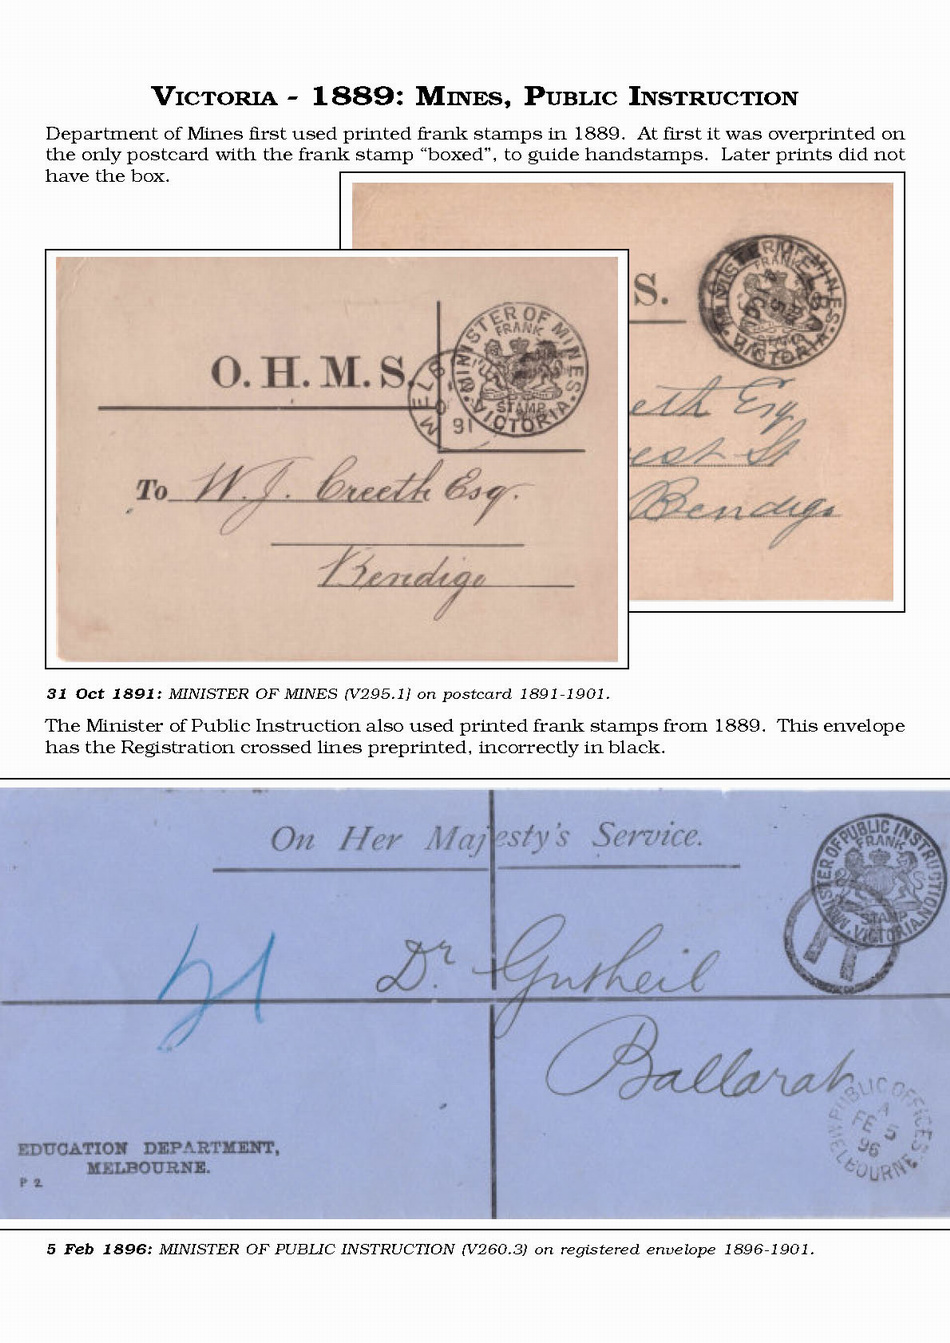 VICTORIA - 1889: MINES, PUBLIC INSTRUCTION
Department of Mines first used printed frank stamps in 1889. At first it was overprinted on
the only postcard with the frank stamp “boxed”, to guide handstamps. Later prints did not
have the box.
S.
MINISTER OF MINES
FRANK
STAMP
VICTORIA
eth Esq
est St
Bendigo
O.H.M.S.
MINISTER OF MINES
FRANK
STAMP
VICTORIA
MELB
91
To W. J. Creeth Esq.
Bendigo
31 Oct 1891: MINISTER OF MINES (V295.1) on postcard 1891-1901.
The Minister of Public Instruction also used printed frank stamps from 1889. This envelope
has the Registration crossed lines preprinted, incorrectly in black.
On Her Majesty's Service.
MINISTER OF PUBLIC INSTRUCTION
FRANK
STAMP
VICTORIA
R
Dr. Gutheil
Ballarat
PUBLIC OFFICES
A
FE 5
96
MELBOURNE
EDUCATION DEPARTMENT,
MELBOURNE.
P 2
5 Feb 1896: MINISTER OF PUBLIC INSTRUCTION (V260.3) on registered envelope 1896-1901.